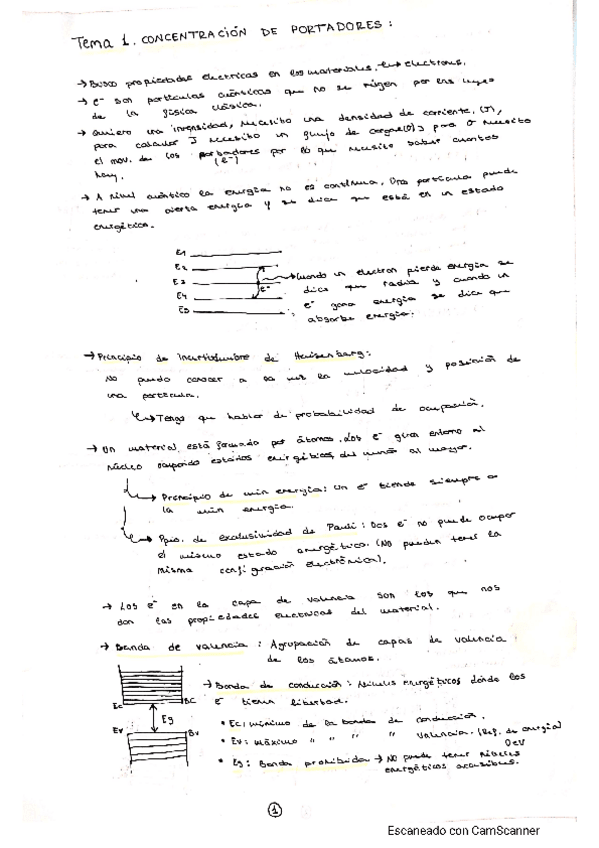 Tema 1. CONCENTRACIÓN DE PORTADORES:
→ Busco propiedades electricas en los materiales, electrons.
→ e⁻ son partículas cuánticas que no se rigen por las leyes
de la física clásica.
→ Quiero una intensidad, necesito una densidad de corriente, (J),
para calcular J necesito un flujo de cargas(σ) y para σ necesito
el mov. de los portadores por lo que necesito saber cuantos
(e⁻)
hay.
→ A nivel cuántico la energía no es continua. Una partícula puede
tener una cierta energía y se dice que está en un estado
energético.
E1
E2
E3
E4
E5
e⁻
→ Cuando un electron pierde energía se
dice que radia y cuando un
e⁻ gana energia se dice que
absorbe energía.
→ Principio de Incertidumbre de Heisenberg:
No puedo conocer a la vez la velocidad y posición de
una partícula.
↳ Tengo que hablar de probabilidad de ocupación.
→ Un material está formado por átomos. Los e⁻ giran entorno al
núcleo ocupando estados energéticos, del menor al mayor.
→ Principio de min energía: Un e⁻ tiende siempre a
la min energía.
→ Ppio. de exclusividad de Pauli: Dos e⁻ no puede ocupar
el mismo estado energético. (No pueden tener la
misma configuración electrónica).
→ Los e⁻ en la capa de valencia son los que nos
dan las propiedades electricas del material.
→ Banda de valencia: Agrupación de capas de valencia
de los átomos.
→ Banda de conducción: Niveles energéticos donde los
e⁻ tienen libertad.
Ec
BC
Eg
Ev
BV
• Ec: mínimo de la banda de conducción.
• Ev: máximo " " " " valencia. (Ref. de energía)
0eV
• Eg: Banda prohibida → No puede tener niveles
energéticos accesibles.
1
Escaneado con CamScanner